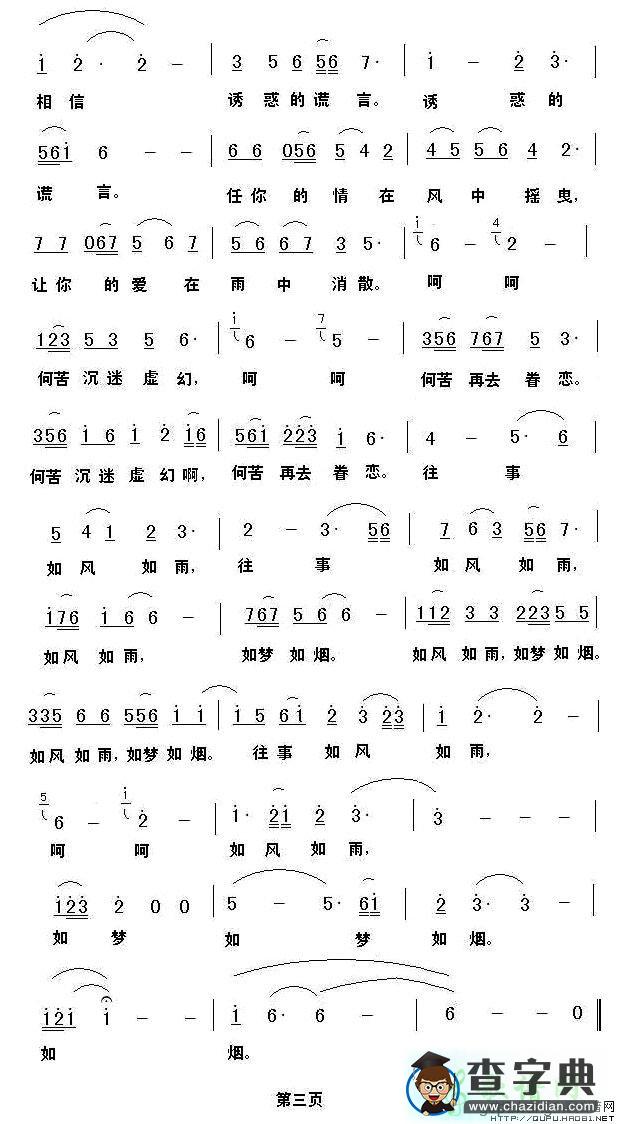 1 2· 2 - | 3 5 6 56 7· | 1 - 2 3· |
相信 诱惑的谎言。诱 惑的
561 6 - - | 6 6 056 5 4 2 | 4 5 5 6 4 2· |
谎 言。 任你 的 情 在 风 中 摇 曳,
7 7 067 5 6 7 | 5 6 6 7 3 5· | i 6 - 4 2 - |
让你 的 爱 在 雨 中 消 散。 呵 呵
123 5 3 5 6· | i 6 - 7 5 - | 356 767 5 3· |
何苦 沉迷 虚 幻, 呵 呵 何苦 再去 眷 恋。
356 1 6 1 2 16 | 561 223 1 6· | 4 - 5· 6 |
何苦 沉 迷 虚 幻 啊, 何苦 再去 眷 恋。往 事
5 4 1 2 3· | 2 - 3· 56 | 7 6 3 56 7· |
如 风 如 雨, 往 事 如 风 如 雨,
176 1 6 6 - | 767 5 6 6 - | 112 3 3 223 5 5 |
如风 如 雨, 如梦 如 烟。 如风 如 雨,如梦 如 烟。
335 6 6 556 1 1 | 1 5 61 2 3 23 | 1 2· 2 - |
如风 如 雨,如梦 如 烟。 往 事 如 风 如 雨,
5 6 - i 2 - | 1· 21 2 3· | 3 - - - |
呵 呵 如 风 如 雨,
123 2 0 0 | 5 - 5· 61 | 2 3· 3 - |
如 梦 如 梦 如 烟。
121 1 - - | 1 6· 6 - | 6 - - 0 ‖
如 烟。
第三页
查字典
www.chazidian.com
HTTP://QUPU.HAO81.NET